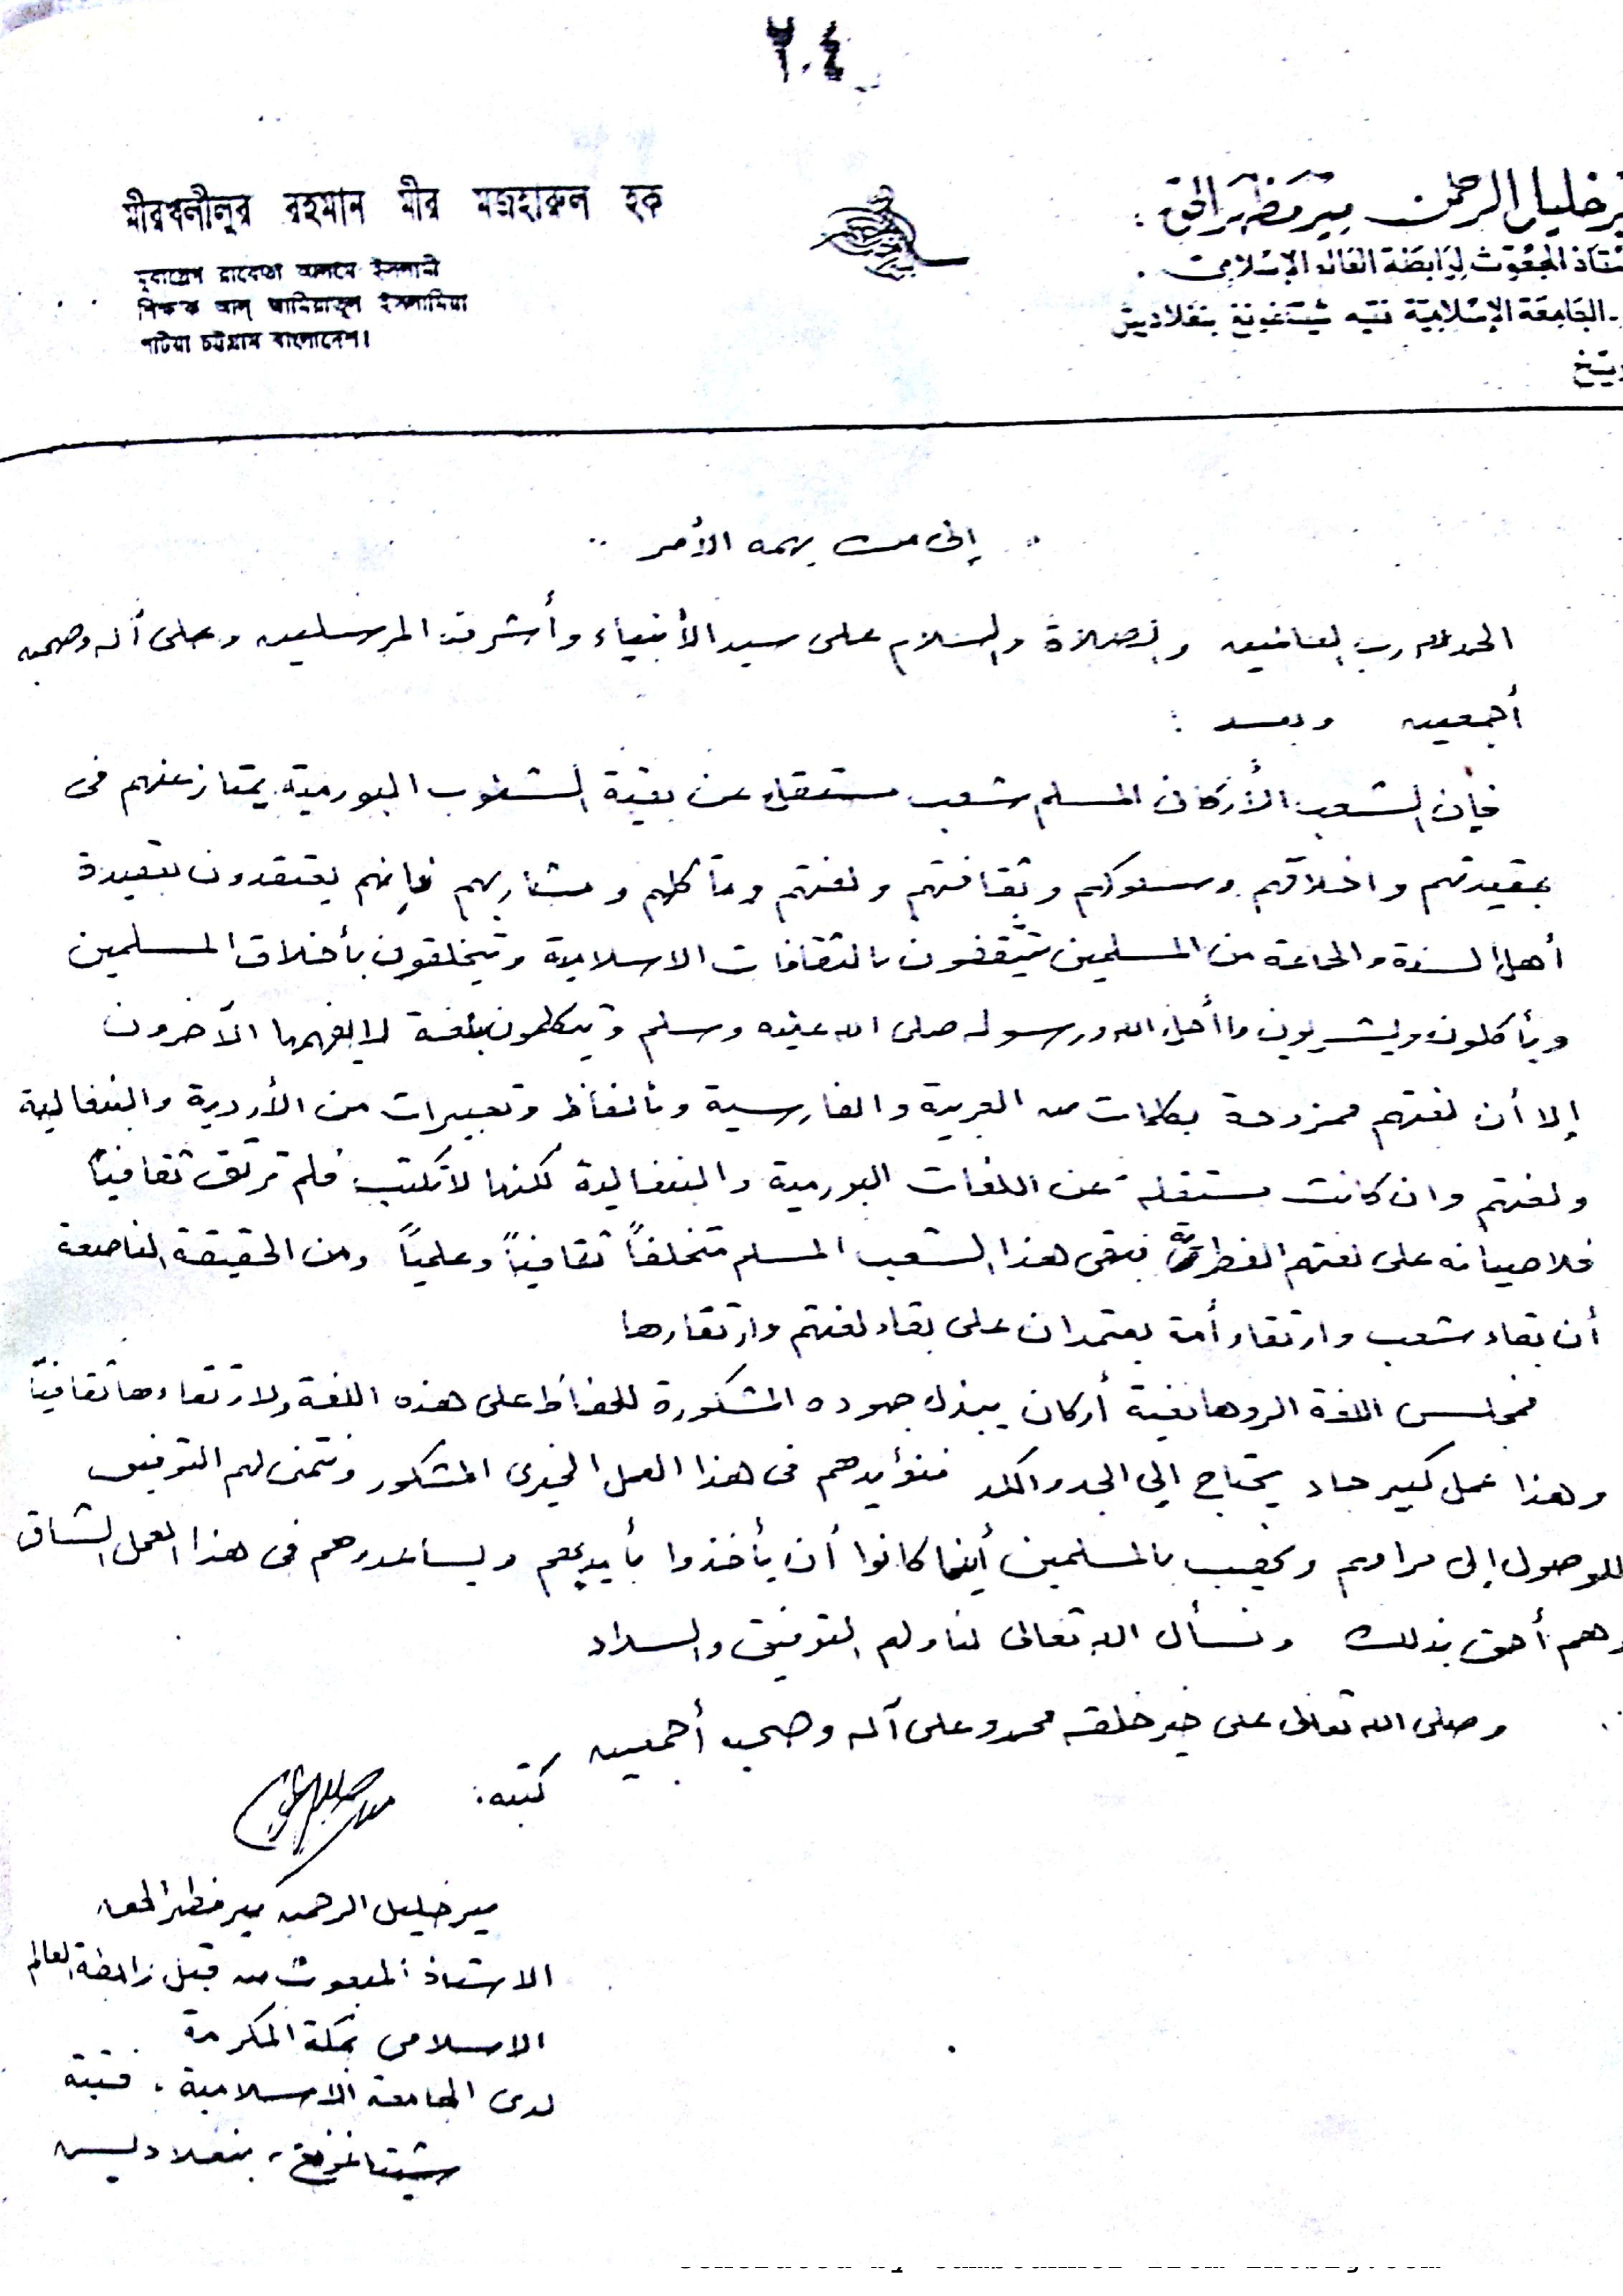 ٢٠٤
মীরখলীলুর রহমান মীর মজহারুল হক
মুবায়েস রাবেতা আলমে ইসলামী
শিক্ষক আল্ জামিয়াতুল ইসলামিয়া
পাটিয়া চট্টগ্রাম বাংলাদেশ।
خليل الرحمن مير مظهر الحق :
المبعوث لرابطة العالم الإسلامي .
الجامعة الإسلامية فتيه شيتاغونغ بنغلاديش
إلى من يهمه الأمر
الحمد لله رب العالمين والصلاة والسلام على سيد الأنبياء وأشرف المرسلين وعلى آله وصحبه
أجمعين وبعد :
فإن الشعب الأركاني المسلم شعب مستقل عن بقية الشعوب البورمية يمتاز عنهم فى
بعقيدتهم واخلاقهم وسلوكهم وثقافتهم ولغتهم ومآكلهم ومشاربهم فإنهم يعتقدون بعقيدة
أهل السنة والجماعة من المسلمين يتثقفون بالثقافات الاسلامية ويتخلقون بأخلاق المسلمين
ويأكلون ويشربون ما أحل الله ورسوله صلى الله عليه وسلم ويتكلمون بلغة لا يفهمها الآخرون
إلا أن لغتهم ممزوجة بكلمات من العربية والفارسية وبألفاظ وتعبيرات من الأردية والبنغالية
ولغتهم وان كانت مستقلة عن اللغات البورمية والبنغالية لكنها لا تكتب فلم ترتق ثقافياً
فلا صيانه على لغتهم الفطرية فبقى هذا الشعب المسلم متخلفاً ثقافياً وعلمياً ومن الحقيقة الناصعة
أن بقاء شعب وارتقاء أمة يعتمدان على بقاء لغتهم وارتقاءها
فمجلس اللغة الروهانغية أركان يبذل جهوده المشكورة للحفاظ على هذه اللغة ولارتقاءها ثقافياً
وهذا عمل كبير جاد يحتاج إلي الجد والكد فنؤيدهم فى هذا العمل الخيرى المشكور ونتمنى لهم التوفيق
للوصول إلى مرامهم ونهيب بالمسلمين أينما كانوا أن يأخذوا بأيديهم ويساعدوهم فى هذا العمل الشاق
وهم أحق بذلك ونسأل الله تعالى لنا ولهم التوفيق والسداد
وصلى الله تعالى على خير خلقه محمد وعلى آله وصحبه أجمعين
كتبه :
مير خليل الرحمن مير مظهر الحق
الاستاذ المبعوث من قبل رابطة العالم
الاسلامى بمكة المكرمة
لدى الجامعة الاسلامية . فتية
شيتاغونغ - بنغلاديش